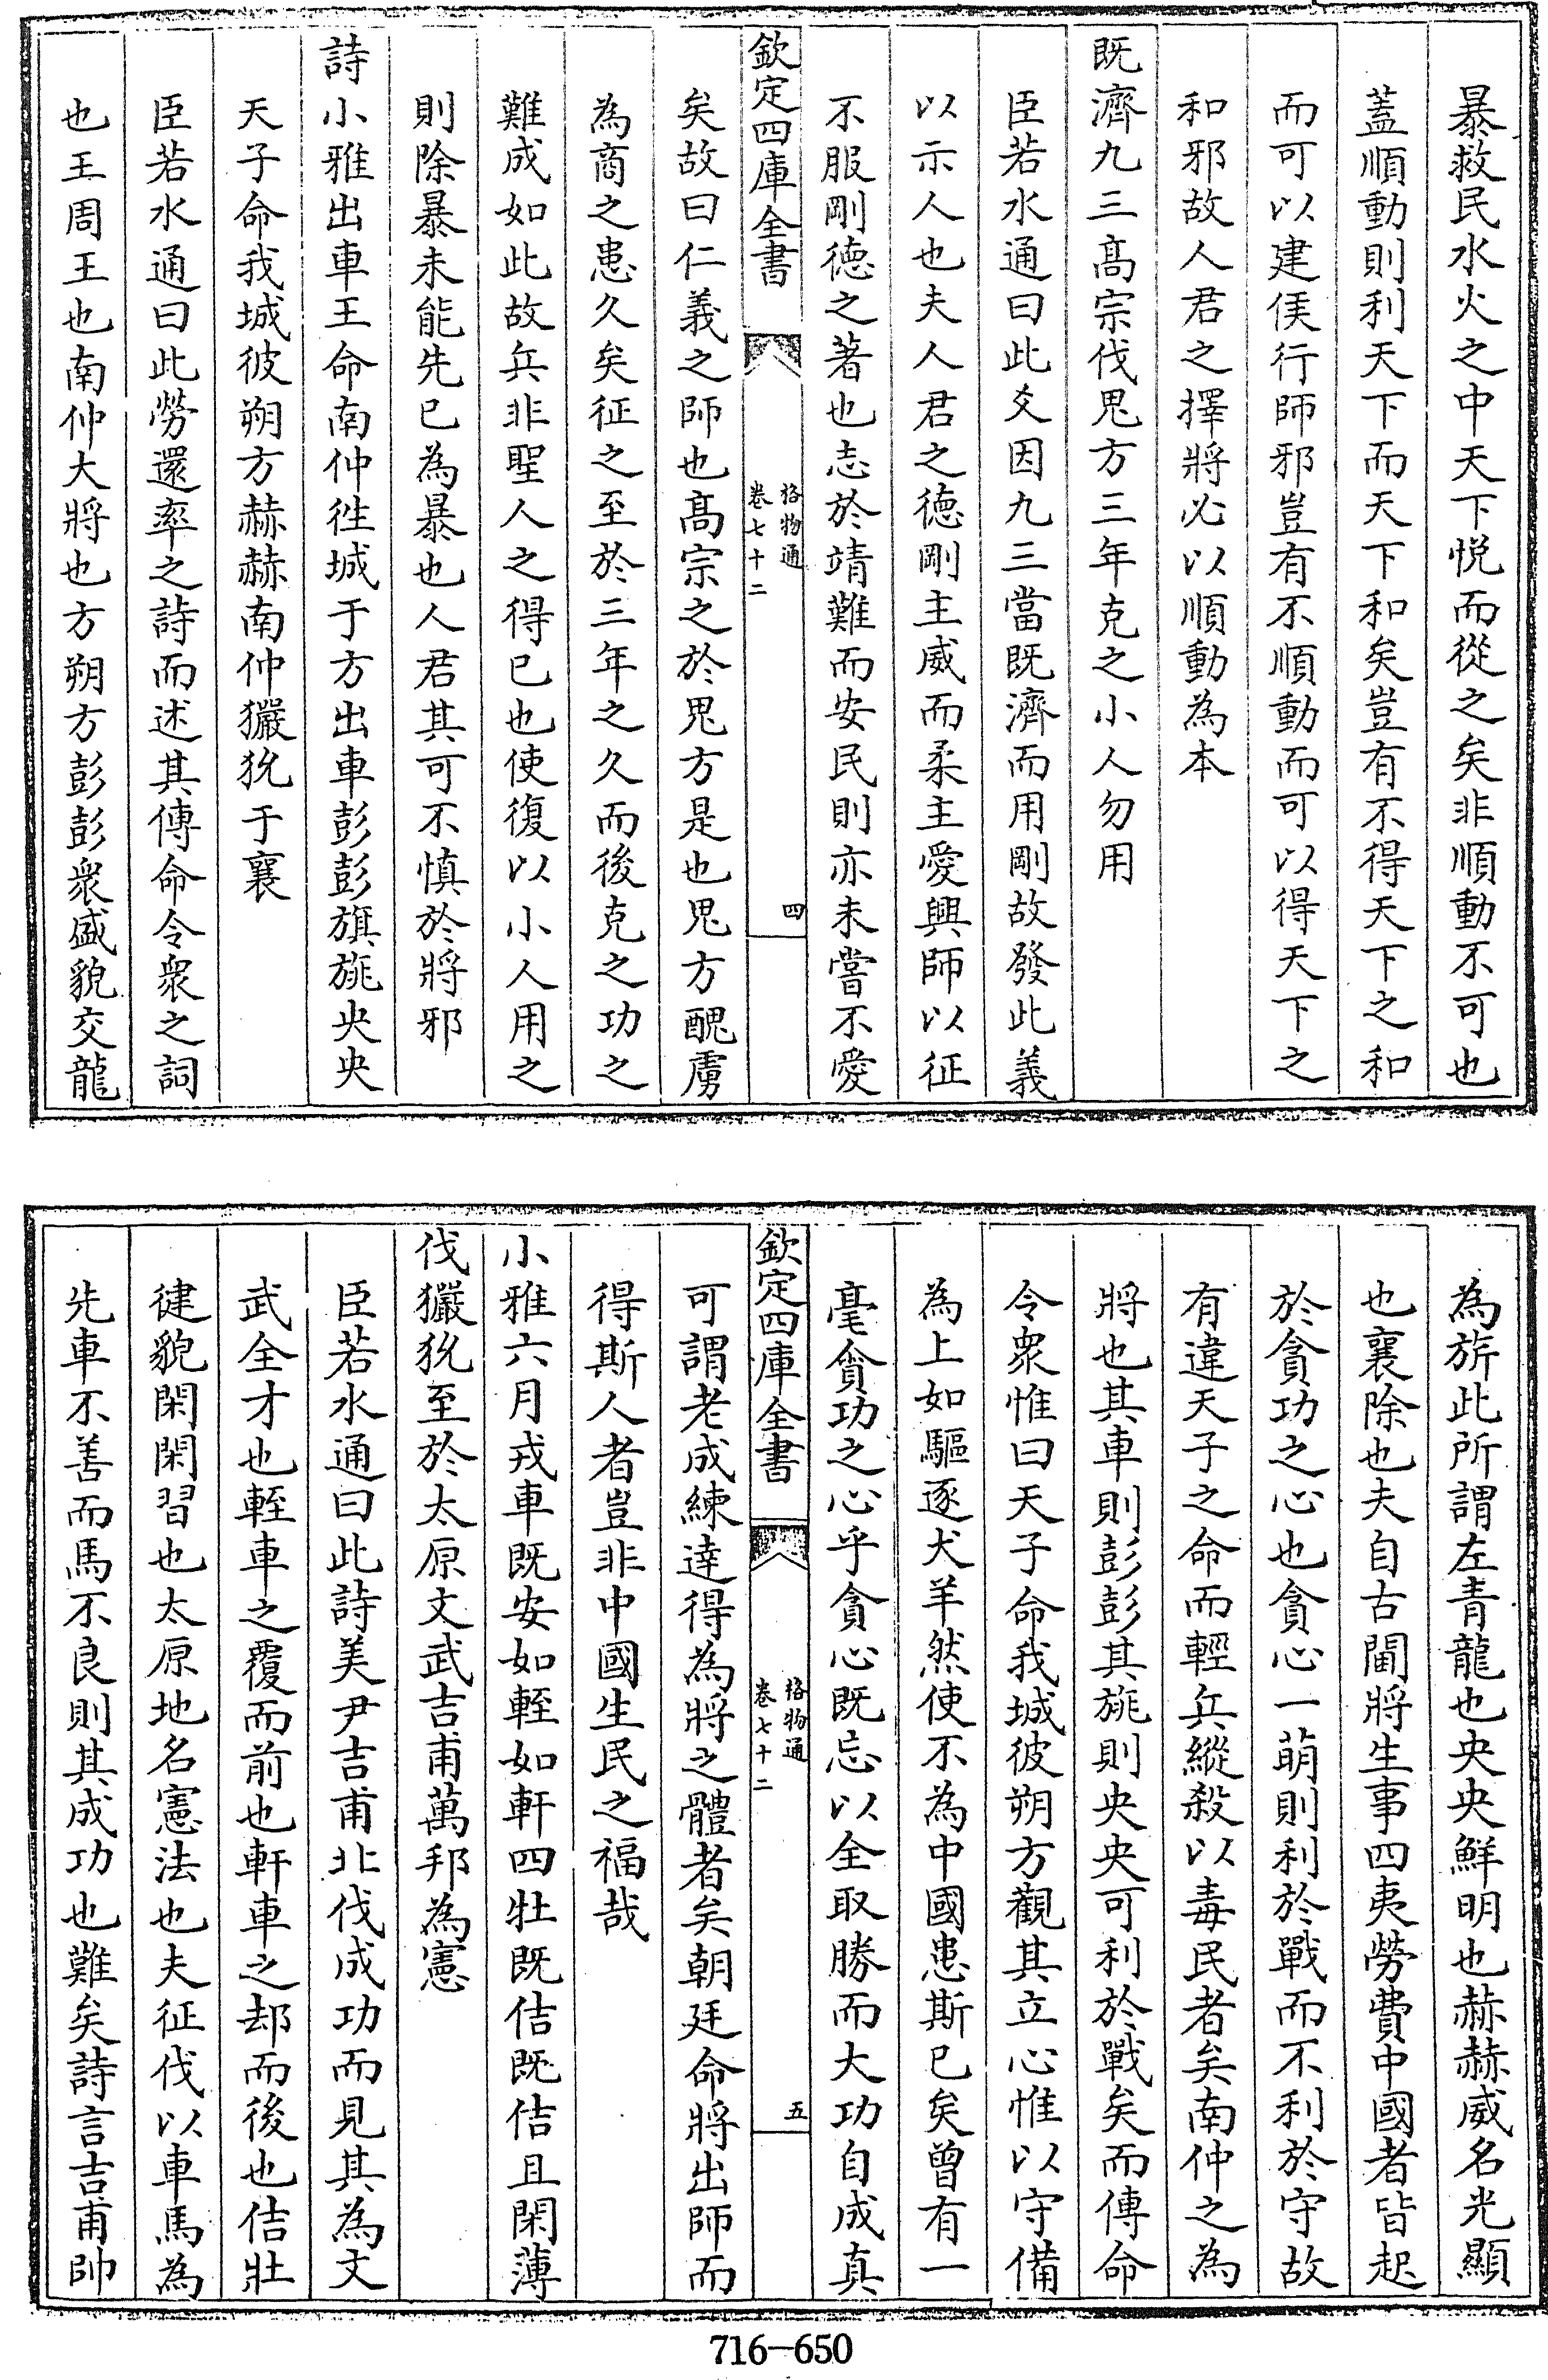 暴救民水火之中天下悦而從之矣非順動不可也
蓋順動則利天下而天下和矣豈有不得天下之和
而可以建侯行師邪豈有不順動而可以得天下之
和邪故人君之擇將必以順動為本
既濟九三髙宗伐鬼方三年克之小人勿用
臣若水通曰此爻因九三當既濟而用剛故發此義
以示人也夫人君之德剛主威而柔主愛興師以征
不服剛德之著也志於靖難而安民則亦未嘗不愛
欽定四庫全書
格物通
卷七十二
四
矣故曰仁義之師也髙宗之於鬼方是也鬼方醜虜
為商之患久矣征之至於三年之久而後克之功之
難成如此故兵非聖人之得已也使復以小人用之
則除暴未能先已為暴也人君其可不慎於將邪
詩小雅出車王命南仲徃城于方出車彭彭旗旐央央
天子命我城彼朔方赫赫南仲玁狁于襄
臣若水通曰此勞還率之詩而述其傳命令衆之詞
也王周王也南仲大將也方朔方彭彭衆盛貌交龍
為旂此所謂左青龍也央央鮮明也赫赫威名光顯
也襄除也夫自古閫將生事四夷勞費中國者皆起
於貪功之心也貪心一萌則利於戰而不利於守故
有違天子之命而輕兵縱殺以毒民者矣南仲之為
將也其車則彭彭其旐則央央可利於戰矣而傳命
令衆惟曰天子命我城彼朔方觀其立心惟以守備
為上如驅逐犬羊然使不為中國患斯已矣曾有一
毫貪功之心乎貪心既忘以全取勝而大功自成真
欽定四庫全書
格物通
卷七十二
五
可謂老成練達得為將之體者矣朝廷命將出師而
得斯人者豈非中國生民之福哉
小雅六月戎車既安如輊如軒四牡既佶既佶且閑薄
伐玁狁至於太原文武吉甫萬邦為憲
臣若水通曰此詩美尹吉甫北伐成功而見其為文
武全才也輊車之覆而前也軒車之却而後也佶壯
健貌閑閑習也太原地名憲法也夫征伐以車馬為
先車不善而馬不良則其成功也難矣詩言吉甫帥
716-650